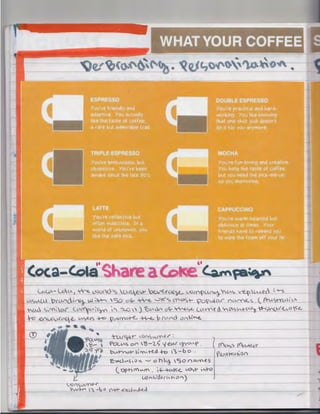 WHAT YOUR COFFEE S
De-Branding. Personalization.
ESPRESSO
You're friendly and
adaptive. You actually
like the taste of coffee,
a rare but admirable trait
DOUBLE ESPRESSO
You're practical and hard-
working. You like knowing
that one shot just doesn't
do it for you anymore.
TRIPLE ESPRESSO
You're enthusiastic but
obsessive. You've been
awake since the late 90's
MOCHA
You're fun-loving and creative.
You hate the taste of coffee,
but you need the pick-me-up
LATTE
You're reflective but
often indecisive. In a
world of unknowns, you
like the safe pick.
CAPPUCCINO
You're warm-hearted but
oblivious at times. Your
friends need to remind you
to wipe the foam off your lip
Coca-Cola "Share a Coke" Campaign
Coca-Cola, the world's largest beverage company has replaced its
usual branding with 150 of the most popular names. (Australia
had similar campaign in 2011)
to encourage men to promote the brand online
① target consumer:
focus on 18-25 year group
but not limited to 13-60
Exclusion - only 150 names
(optimum,
consideration)
consumer
not excluded